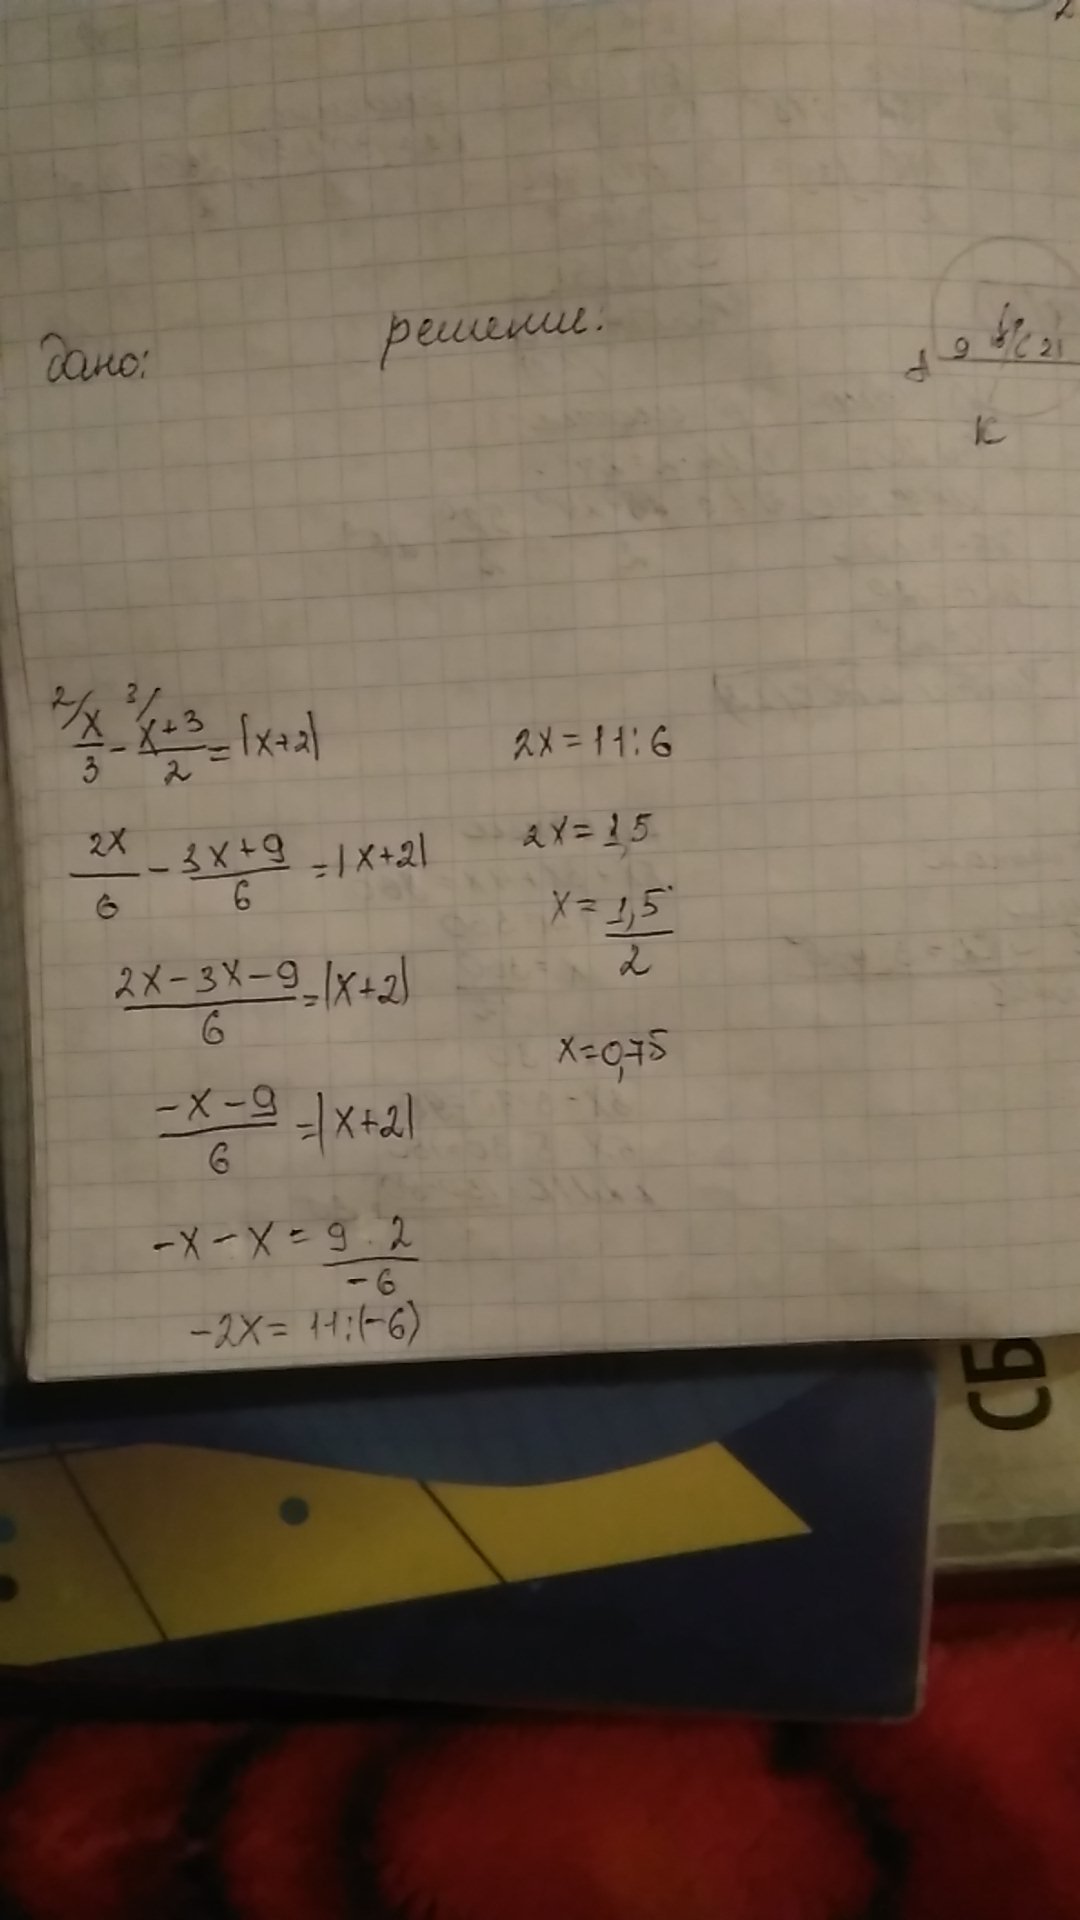 дано:
решение:
A 9 C 21
K
2/ 3/
x/3 - x+3/2 = |x+2|
2x/6 - 3x+9/6 = |x+2|
2x-3x-9/6 = |x+2|
-x-9/6 = |x+2|
-x-x = 9·2/-6
-2x = 11:(-6)
2x = 11:6
2x = 1,5
x = 1,5/2
x = 0,75
СБ